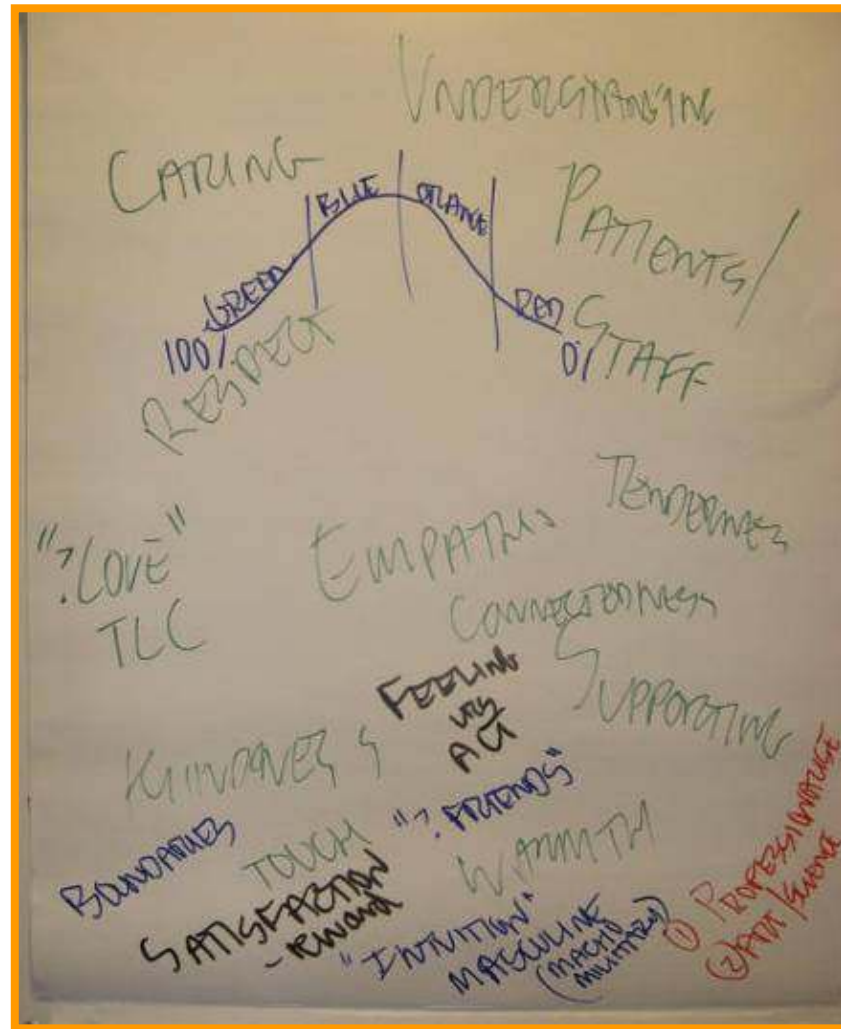 UNDERSTANDING
CARING
BLUE
ORANGE
PATIENTS/
STAFF
GREEN
RED
100/
0/
RESPECT
TENDERNESS
"?LOVE"
TLC
EMPATHY
CONNECTEDNESS
SUPPORTING
FEELING
VS
ACT
KINDNESS
"?FRIENDS"
BOUNDARIES
TOUCH
WARMTH
SATISFACTION
- REWARD
"INTUITION"
MASCULINE
(MACHO
MILITARY)
① PROFESSIONALISE
② ART/SCIENCE